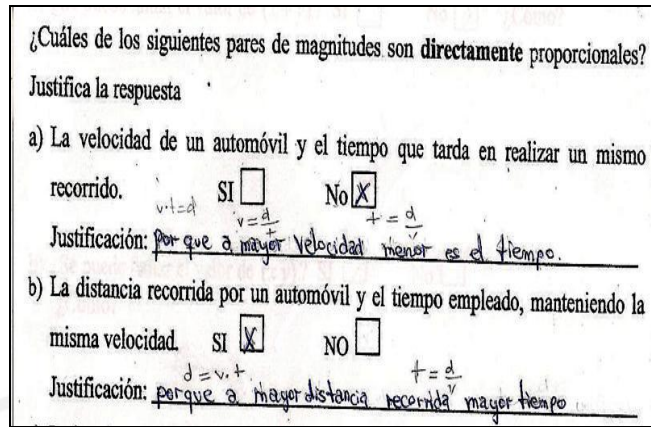 ¿Cuáles de los siguientes pares de magnitudes son directamente proporcionales?
Justifica la respuesta
a) La velocidad de un automóvil y el tiempo que tarda en realizar un mismo
recorrido. SI No X
v·t=d v=d/t t=d/v
Justificación: por que a mayor velocidad menor es el tiempo.
b) La distancia recorrida por un automóvil y el tiempo empleado, manteniendo la
misma velocidad. SI X NO
d=v·t t=d/v
Justificación: porque a mayor distancia recorrida mayor tiempo